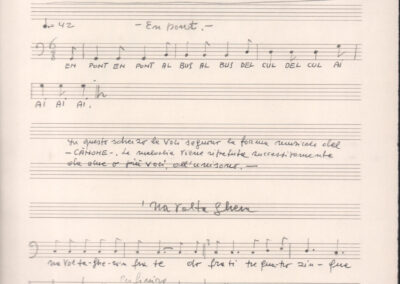 ♩= 42
- En pont. -
EN PONT EN PONT AL BUS AL BUS DEL CUL DEL CUL AI
AI AI AI.
In questo scherzo le voci seguono la forma musicale del
- CANONE -. La melodia viene ripetuta successivamente
da due o più voci, all'unisono. -
'Na volta ghera
na vol-ta-ghe-ra fra te do fra ti tre qua-tro zin - que